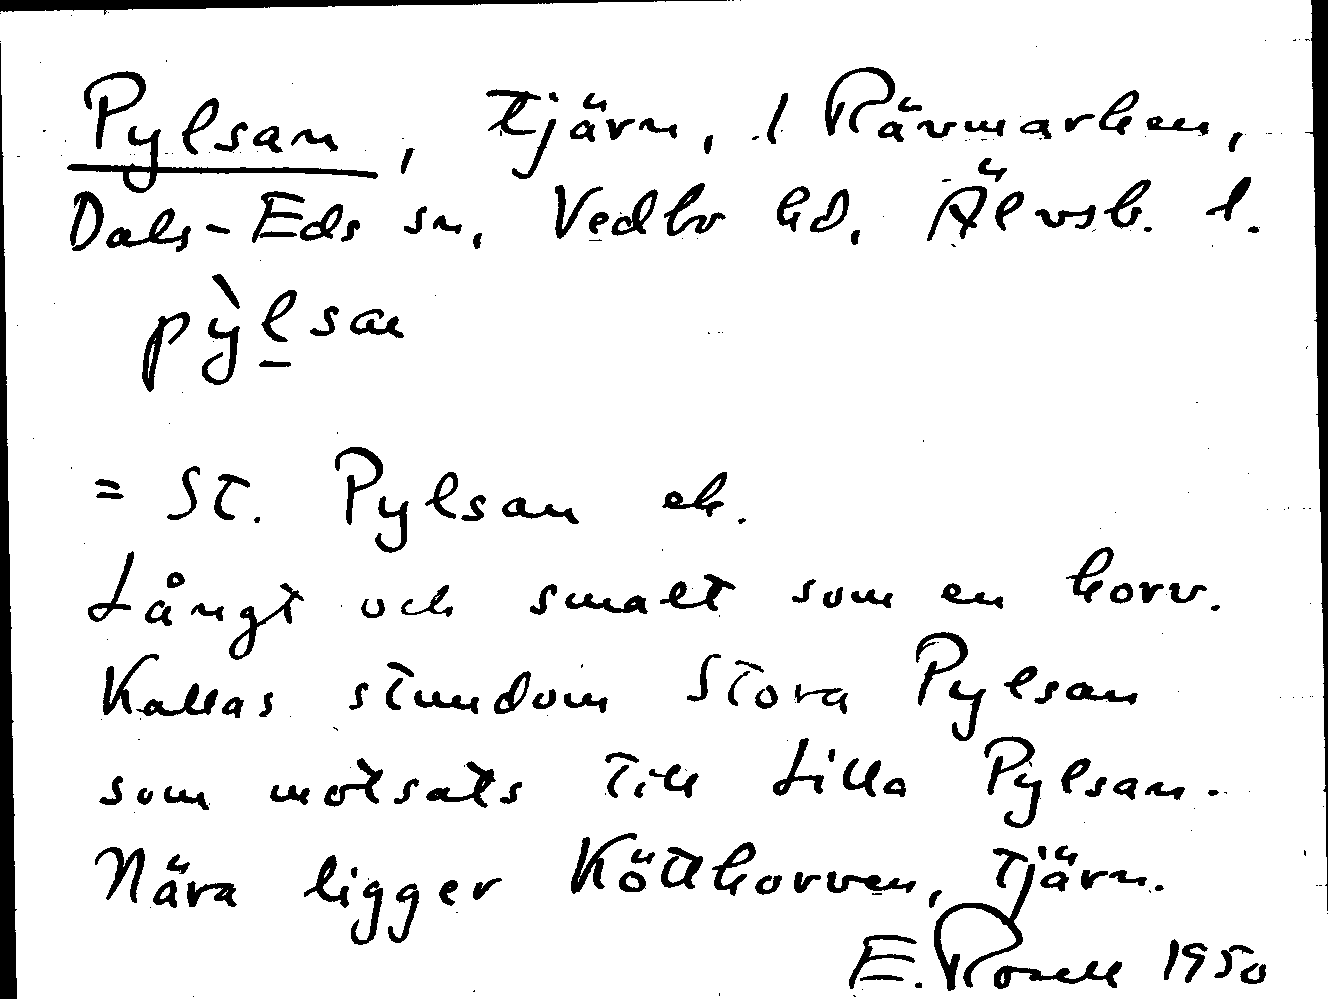 Pylsan, tjärn, i Rävmarken,
Dals-Eds sn, Vedbo hd, Älvsb. l.
pỳlsan
= St. Pylsan ek.
Långt och smalt som en korv.
Kallas stundom Stora Pylsan
som motsats till Lilla Pylsan.
Nära ligger Köttkorven, tjärn.
E. Rosell 1950